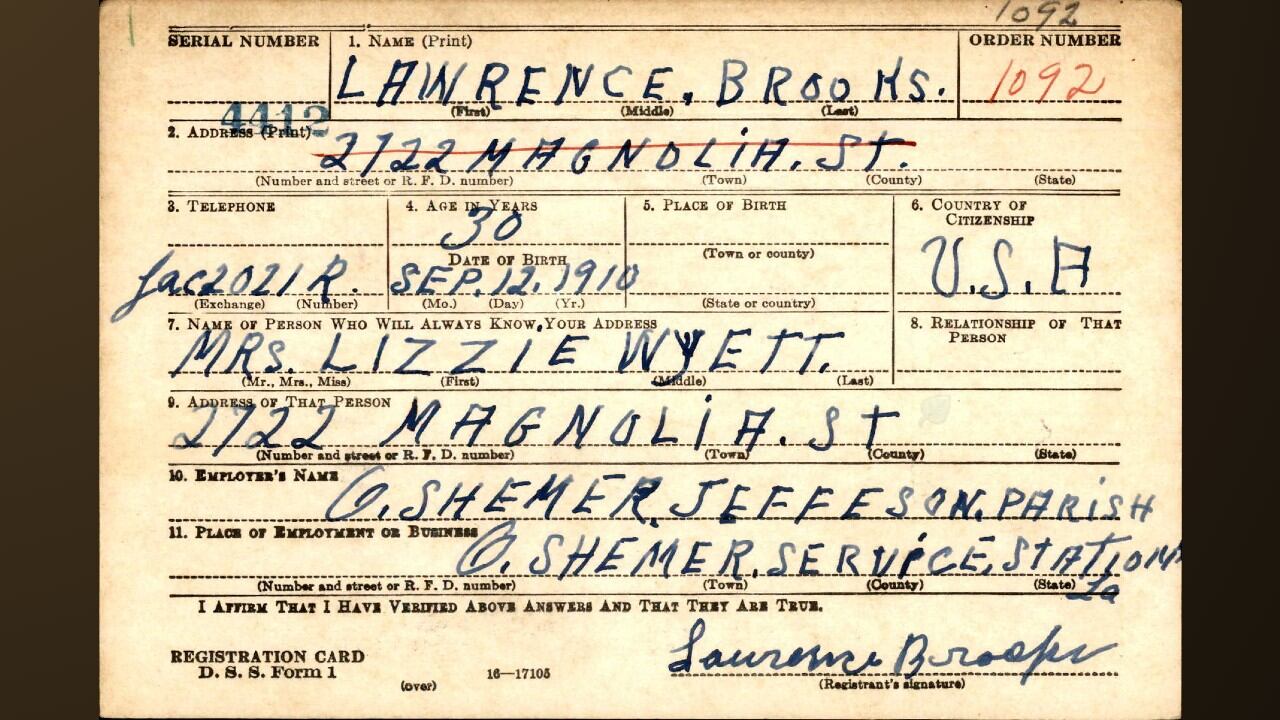 1092
SERIAL NUMBER 1. NAME (Print) ORDER NUMBER
LAWRENCE. BROOKS. 1092
4412 (First) (Middle) (Last)
2. ADDRESS (Print)
2722 MAGNOLIA. ST.
(Number and street or R. F. D. number) (Town) (County) (State)
3. TELEPHONE 4. AGE IN YEARS 5. PLACE OF BIRTH 6. COUNTRY OF CITIZENSHIP
30
DATE OF BIRTH (Town or county) U.S.A
Jac2021 R. SEP. 12. 1910
(Exchange) (Number) (Mo.) (Day) (Yr.) (State or country)
7. NAME OF PERSON WHO WILL ALWAYS KNOW YOUR ADDRESS 8. RELATIONSHIP OF THAT PERSON
MRS. LIZZIE WYETT.
(Mr., Mrs., Miss) (First) (Middle) (Last)
9. ADDRESS OF THAT PERSON
2722 MAGNOLIA. ST
(Number and street or R. F. D. number) (Town) (County) (State)
10. EMPLOYER'S NAME
O. SHEMER. JEFFESON. PARISH
11. PLACE OF EMPLOYMENT OR BUSINESS
O. SHEMER. SERVICE. STATION
(Number and street or R. F. D. number) (Town) (County) (State) La
I AFFIRM THAT I HAVE VERIFIED ABOVE ANSWERS AND THAT THEY ARE TRUE.
REGISTRATION CARD Lawrence Brooks
D. S. S. Form 1 16—17105
(over) (Registrant's signature)